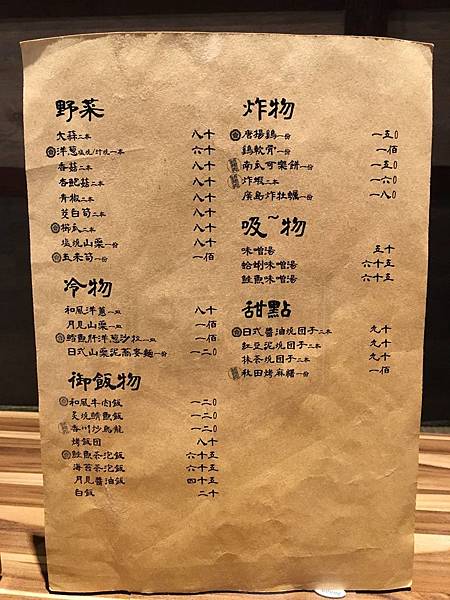 野菜
大蒜二本 八十
洋蔥鹽燒/汁燒一本 六十
香菇二本 八十
杏鮑菇二本 八十
青椒二本 八十
茭白筍二本 八十
櫛瓜二本 八十
鹽燒山藥一份 八十
玉米筍一份 一佰
冷物
和風洋蔥一皿 八十
月見山藥一皿 一佰
鱈魚肝洋蔥沙拉一皿 一佰
日式山藥泥蕎麥麵一份 一二0
御飯物
和風牛肉飯 一二0
炙燒鯖魚飯 一二0
香川炒烏龍 一二0
烤飯団 八十
鮭魚茶泡飯 六十五
海苔茶泡飯 六十五
月見醬油飯 四十五
白飯 二十
炸物
唐揚鷄一份 一五0
鷄軟骨一份 一佰
南瓜可樂餅一份 一五0
炸蝦二本 一六0
廣島炸牡蠣一份 一八0
吸~物
味噌湯 五十
蛤蜊味噌湯 六十五
鮭魚味噌湯 六十五
甜點
日式醬油燒団子二本 九十
紅豆泥燒団子二本 九十
抹茶燒団子二本 九十
秋田烤麻糬一份 一佰